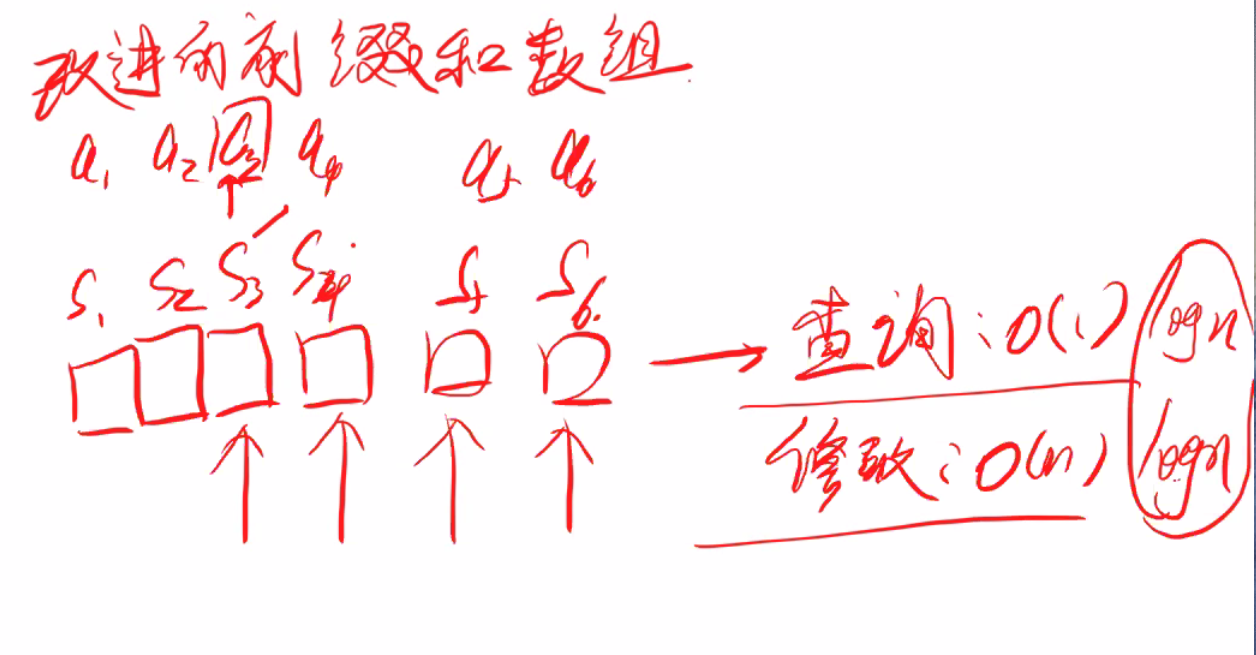 改进的前缀和数组
a1 a2 a3 a4 a5 a6
S1 S2 S3 S4 S5 S6
查询:O(1) logn
修改:O(n) logn